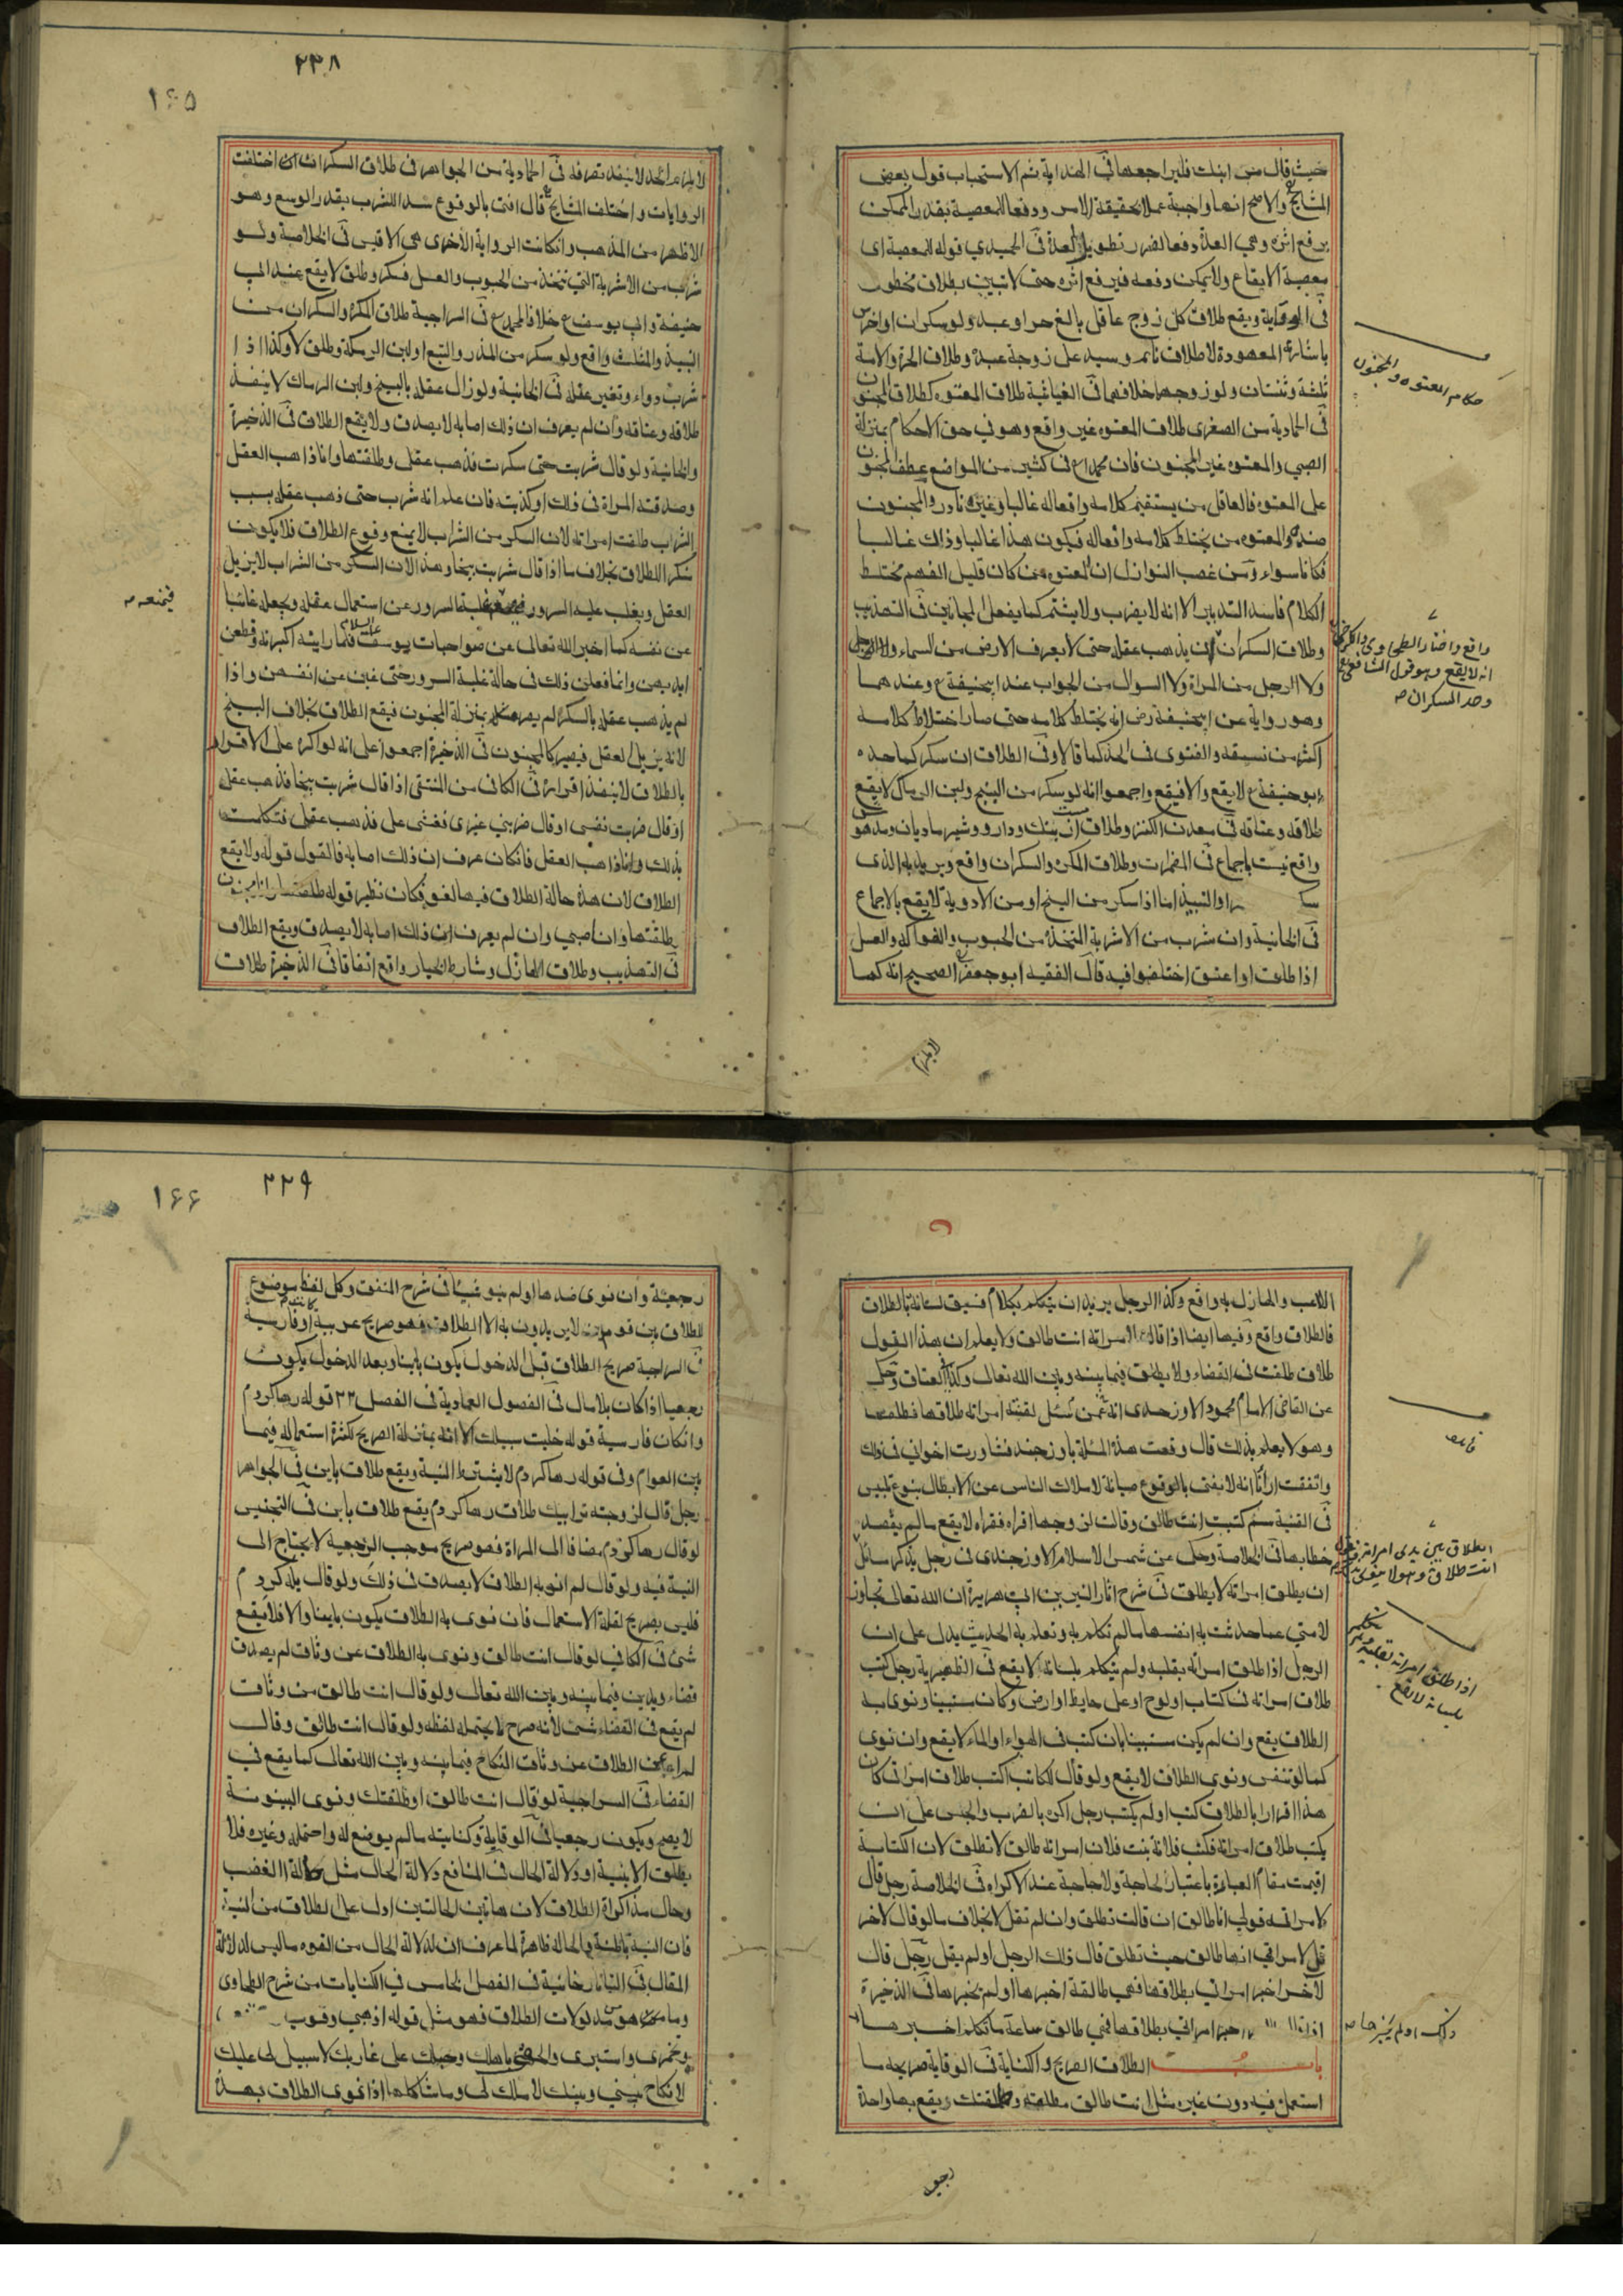 ٢٣٨
١٦٥
حيث قال مر ابنك فليراجعها في الهداية ثم الاستحباب قول بعض
المشايخ والاصح انها واجبة عملا بحقيقة الامر ودفعا للمعصية بقدر الممكن
برفع اثره وهي العدة ودفعا لضرر تطويل العدة في الحميدي قوله للمعصية اي
معصية الايقاع ولا يمكن دفعه فيرفع اثره حتى لا تبين بطلاق محظور
في الوقاية ويقع طلاق كل زوج عاقل بالغ حر او عبد ولو سكران او اخرس
باشارته المعهودة لا طلاق نائم وسيد على زوجة عبده وطلاق الحرة والامة
ثلثة وثنتان ولو زوجهما خلافهما في الغياثية طلاق المعتوه كطلاق المجنون
في الحمادية من الصغرى طلاق المعتوه غير واقع وهو في حق الاحكام بمنزلة
الصبي والمعتوه غير المجنون فان محمدا ع في كثير من المواضع عطف المجنون
على المعتوه فالعاقل من يستقيم كلامه وافعاله غالبا وغيره نادر والمجنون
ضده والمعتوه من يختلط كلامه وافعاله فيكون هذا غالبا وذاك غالبا
فكانا سواء ومن غصب النوازل ان المعتوه من كان قليل الفهم مختلط
الكلام فاسد التدبير الا انه لا يضرب ولا يشتم كما يفعل المجانين في التهذيب
وطلاق السكران ان يذهب عقله حتى لا يعرف الارض من السماء ولا الرجل
ولا الرجل من المراة ولا السوال من الجواب عند ابيحنيفة ع وعندهما
وهو رواية عن ابيحنيفة رض انه يختلط كلامه حتى صار اختلاط كلامه
اكثر من نسيقه والفتوى في الحد كما قالا وفي الطلاق ان سكر كما حده
ابو حنيفة ع لا يقع والا فيقع واجمعوا انه لو سكر من البنج ولبن الرماك لا يقع
طلاقه وعتاقه في معدن الكنز وطلاق از بنك ودارو وشير ماديان ومدهوش
واقع نيست باجماع في المضمرات وطلاق المكره والسكران واقع ويريد به الذي
سكر او النبيذ اما اذا سكر من البنج او من الادوية لا يقع بالاجماع
في الخانية وان شرب من الاشربة المتخذة من الحبوب والفواكه والعسل
اذا طلق او اعتق اختلفوا فيه قال الفقيه ابو جعفر الصحيح انه كما
احكام المعتوه والمجنون
واقع واختار الطحاوي والكرخي
انه لا يقع وهو قول الشافعي
وحد السكران صح
لا يلزمه الحد لا ينفذ تصرفه في الحمادية من الجواهر في طلاق السكران ان اختلفت
الروايات واختلف المشايخ قال افتى بالوقوع سدا للشرب بقدر الوسع وهو
الاظهر من المذهب وان كانت الرواية الاخرى هي الاقيس في الخلاصة ولو
شرب من الاشربة التي تتخذ من الحبوب والعسل فسكر وطلق لا يقع عند ابي
حنيفة وابي يوسف ع خلافا لمحمد ع في السراجية طلاق المكره والسكران من
النبيذ والمثلث واقع ولو سكر من المذر والتبع او لبن الرمكة وطلق لا وكذا اذا
شرب دواء وتغير عقله في الخانية ولو زال عقله بالبنج ولبن الرماك لا ينفذ
طلاقه وعتاقه وان لم يعرف ان ذلك اصابه لا يصدق ولا يقع الطلاق في الذخيرة
والخانية ولو قال شربت حتى سكرت فذهب عقلي وطلقتها وانا ذاهب العقل
وصدقته المراة في ذلك او كذبته فان علم انه شرب حتى ذهب عقله بسبب
الشراب طلقت امراته لان السكر من الشراب لا يمنع وقوع الطلاق فلا يكون
منكرا للطلاق بخلاف ما اذا قال شربت بنجا وهذا لان السكر من الشراب لا يزيل
العقل ويغلب عليه السرور فيمنعه غلبة السرور عن استعمال عقله ويجعله غائبا
عن نفسه كما اخبر الله تعالى عن صواحبات يوسف عليه السلام فلما راينه اكبرنه وقطعن
ايديهن وانما فعلن ذلك في حالة غلبة السرور حتى غبن عن انفسهن واذا
لم يذهب عقله بالسكر لم يصر حكمه بمنزلة المجنون فيقع الطلاق بخلاف البنج
لانه يزيل العقل فيصير كالمجنون في الذخيرة اجمعوا على انه لو اكره على الاقرار
بالطلاق لا ينفذ اقراره في الكافي من المنتقى اذا قال شربت بنجا فذهب عقلي
او قال ضربت نفسي او قال ضربني غيري فغشي علي فذهب عقلي فتكلمت
بذلك وانا ذاهب العقل فان كان عرف ان ذلك اصابه فالقول قوله ولا يقع
الطلاق لان هذه حالة الطلاق فيها لغو فكان نظير قوله طلقتها وانا مجنون
طلقتها وانا صبي وان لم يعرف ان ذلك اصابه لا يصدق ويقع الطلاق
في التهذيب وطلاق الهازل وشارط الخيار واقع اتفاقا في الذخيرة طلاق
فيمنعه صح
٢٢٩
١٦٦
اللاعب والهازل به واقع وكذا الرجل يريد ان يتكلم بكلام فسبق لسانه بالطلاق
فالطلاق واقع وفيها ايضا اذا قال لامراته انت طالق ولا يعلم ان هذا القول
طلاق طلقت في القضاء ولا يطلق فيما بينه وبين الله تعالى وكذا العتاق وحكي
عن القاضي الامام محمود الاوزجندي انه عمن سئل لقنته امراته طلاقها فطلقها
وهو لا يعلم بذلك قال وقعت هذه المسئلة باوزجند فشاورت اخواني في ذلك
واتفقت ارائنا انه لا يفتى بالوقوع صيانة لاملاك الناس عن الابطال بنوع تلبيس
في القنية سئم كتبت انت طالق وقالت لزوجها اقراه فقراه لا يقع ما لم يقصد
خطابها في الخلاصة وحكي عن شمس الاسلام الاوزجندي في رجل يذكر مسائل
ان يطلق امراته لا يطلق في شرح اثار النيرين ابي هريرة ان الله تعالى تجاوز
لامتي عما حدثت به انفسها ما لم تكلم به وتعلم به الحديث يدل على ان
الرجل اذا طلق امراته بقلبه ولم يتكلم بلسانه لا يقع في الظهيرية رجل كتب
طلاق امراته في كتاب او لوح او على حايط او ارض وكان مستبينا ونوى به
الطلاق يقع وان لم يكن مستبينا بان كتب في الهواء او الماء لا يقع وان نوى
كما لو تنفس ونوى الطلاق لا يقع ولو قال للكاتب اكتب طلاق امراتي كان
هذا اقرارا بالطلاق كتب او لم يكتب رجل اكره بالضرب والحبس على ان
يكتب طلاق امراته فكتب فلانة بنت فلان امراته طالق لا تطلق لان الكتابة
اقيمت مقام العبارة باعتبار الحاجة ولا حاجة عند الاكراه في الخلاصة رجل قال
لامراته قولي انا طالق ان قالت تطلق وان لم تقل لا بخلاف ما لو قال لاخر
قل لامراتي انها طالق حيث تطلق قال ذلك الرجل او لم يقل رجل قال
لآخر اخبر امراتي بطلاقها فهي طالقة اخبرها او لم يخبرها في الذخيرة
اخبر امراتي بطلاقها فهي طالق ساعة ما تكلم اخبرها
باب الطلاق الصريح والكناية في الوقاية صريحه ما
استعمل فيه دون غيره مثل انت طالق مطلقة وطلقتك ويقع بها واحدة
قائدة
الطلاق بين يدي امراته
انت طلاق وهو لا ينوي
اذا طلق امراته بقلبه ولم يتكلم
بلسانه لا يقع
ذلك او لم يخبرها صح
رجعية
رجعية وان نوى ضدها او لم ينو شيئا في شرح المتفق وكل لفظ موضوع
للطلاق بين قوم لا يريدون به الا الطلاق فهو صريح عربية او فارسية
في السراجية صريح الطلاق قبل الدخول يكون باينا وبعد الدخول يكون
رجعيا اذا كان بلا مال في الفصول العمادية في الفصل ٢٣ قوله رها كردم
وان كان فارسية قوله خليت سبيلك الا انه بمنزلة الصريح لكثرة استعماله فيما
بين العوام وفي قوله رها كردم لا يشترط النية ويقع طلاق باين في الجواهر
رجل قال لزوجته ترا بيك طلاق رها كردم يقع طلاق باين في التجنيس
لو قال رها كردم مضافا الى المراة فهو صريح موجب الرجعية لا يحتاج الى
النية فيه ولو قال لم انو به الطلاق لا يصدق في ذلك ولو قال يله كردم
فليس بصريح لقلة الاستعمال فان نوى به الطلاق يكون باينا والا فلا يقع
شئ في الكافي لو قال انت طالق ونوى به الطلاق عن وثاق لم يصدق
قضاء ويدين فيما بينه وبين الله تعالى ولو قال انت طالق من وثاق
لم يقع في القضاء شئ لانه صرح لا يحتمله لفظه ولو قال انت طالق وقال
لم اعن الطلاق عن وثاق النكاح فيما بينه وبين الله تعالى كما يقع في
القضاء في السراجية لو قال انت طالق او طلقتك ونوى البينونة
لا يصح ويكون رجعيا في الوقاية وكنايته ما لم يوضع له واحتمله وغيره فلا
يطلق الا بنية او دلالة الحال في المنافع دلالة الحال مثل حالة الغضب
وحال مذاكرة الطلاق لان هاتين الحالتين ادل على الطلاق من النية
فان النية باطنة والحالة ظاهرة لما عرف ان لدلالة الحال من القوة ما ليس لدلالة
المقال في التاتارخانية في الفصل الخامس في الكنايات من شرح الطحاوي
وما هو مدلولات الطلاق فهو مثل قوله اذهبي وقومي
وتخمري واستبرئ والحقي باهلك وحبلك على غاربك لا سبيل لي عليك
لا نكاح بيني وبينك لا ملك لي وما شاكلها اذا نوى الطلاق بهذه